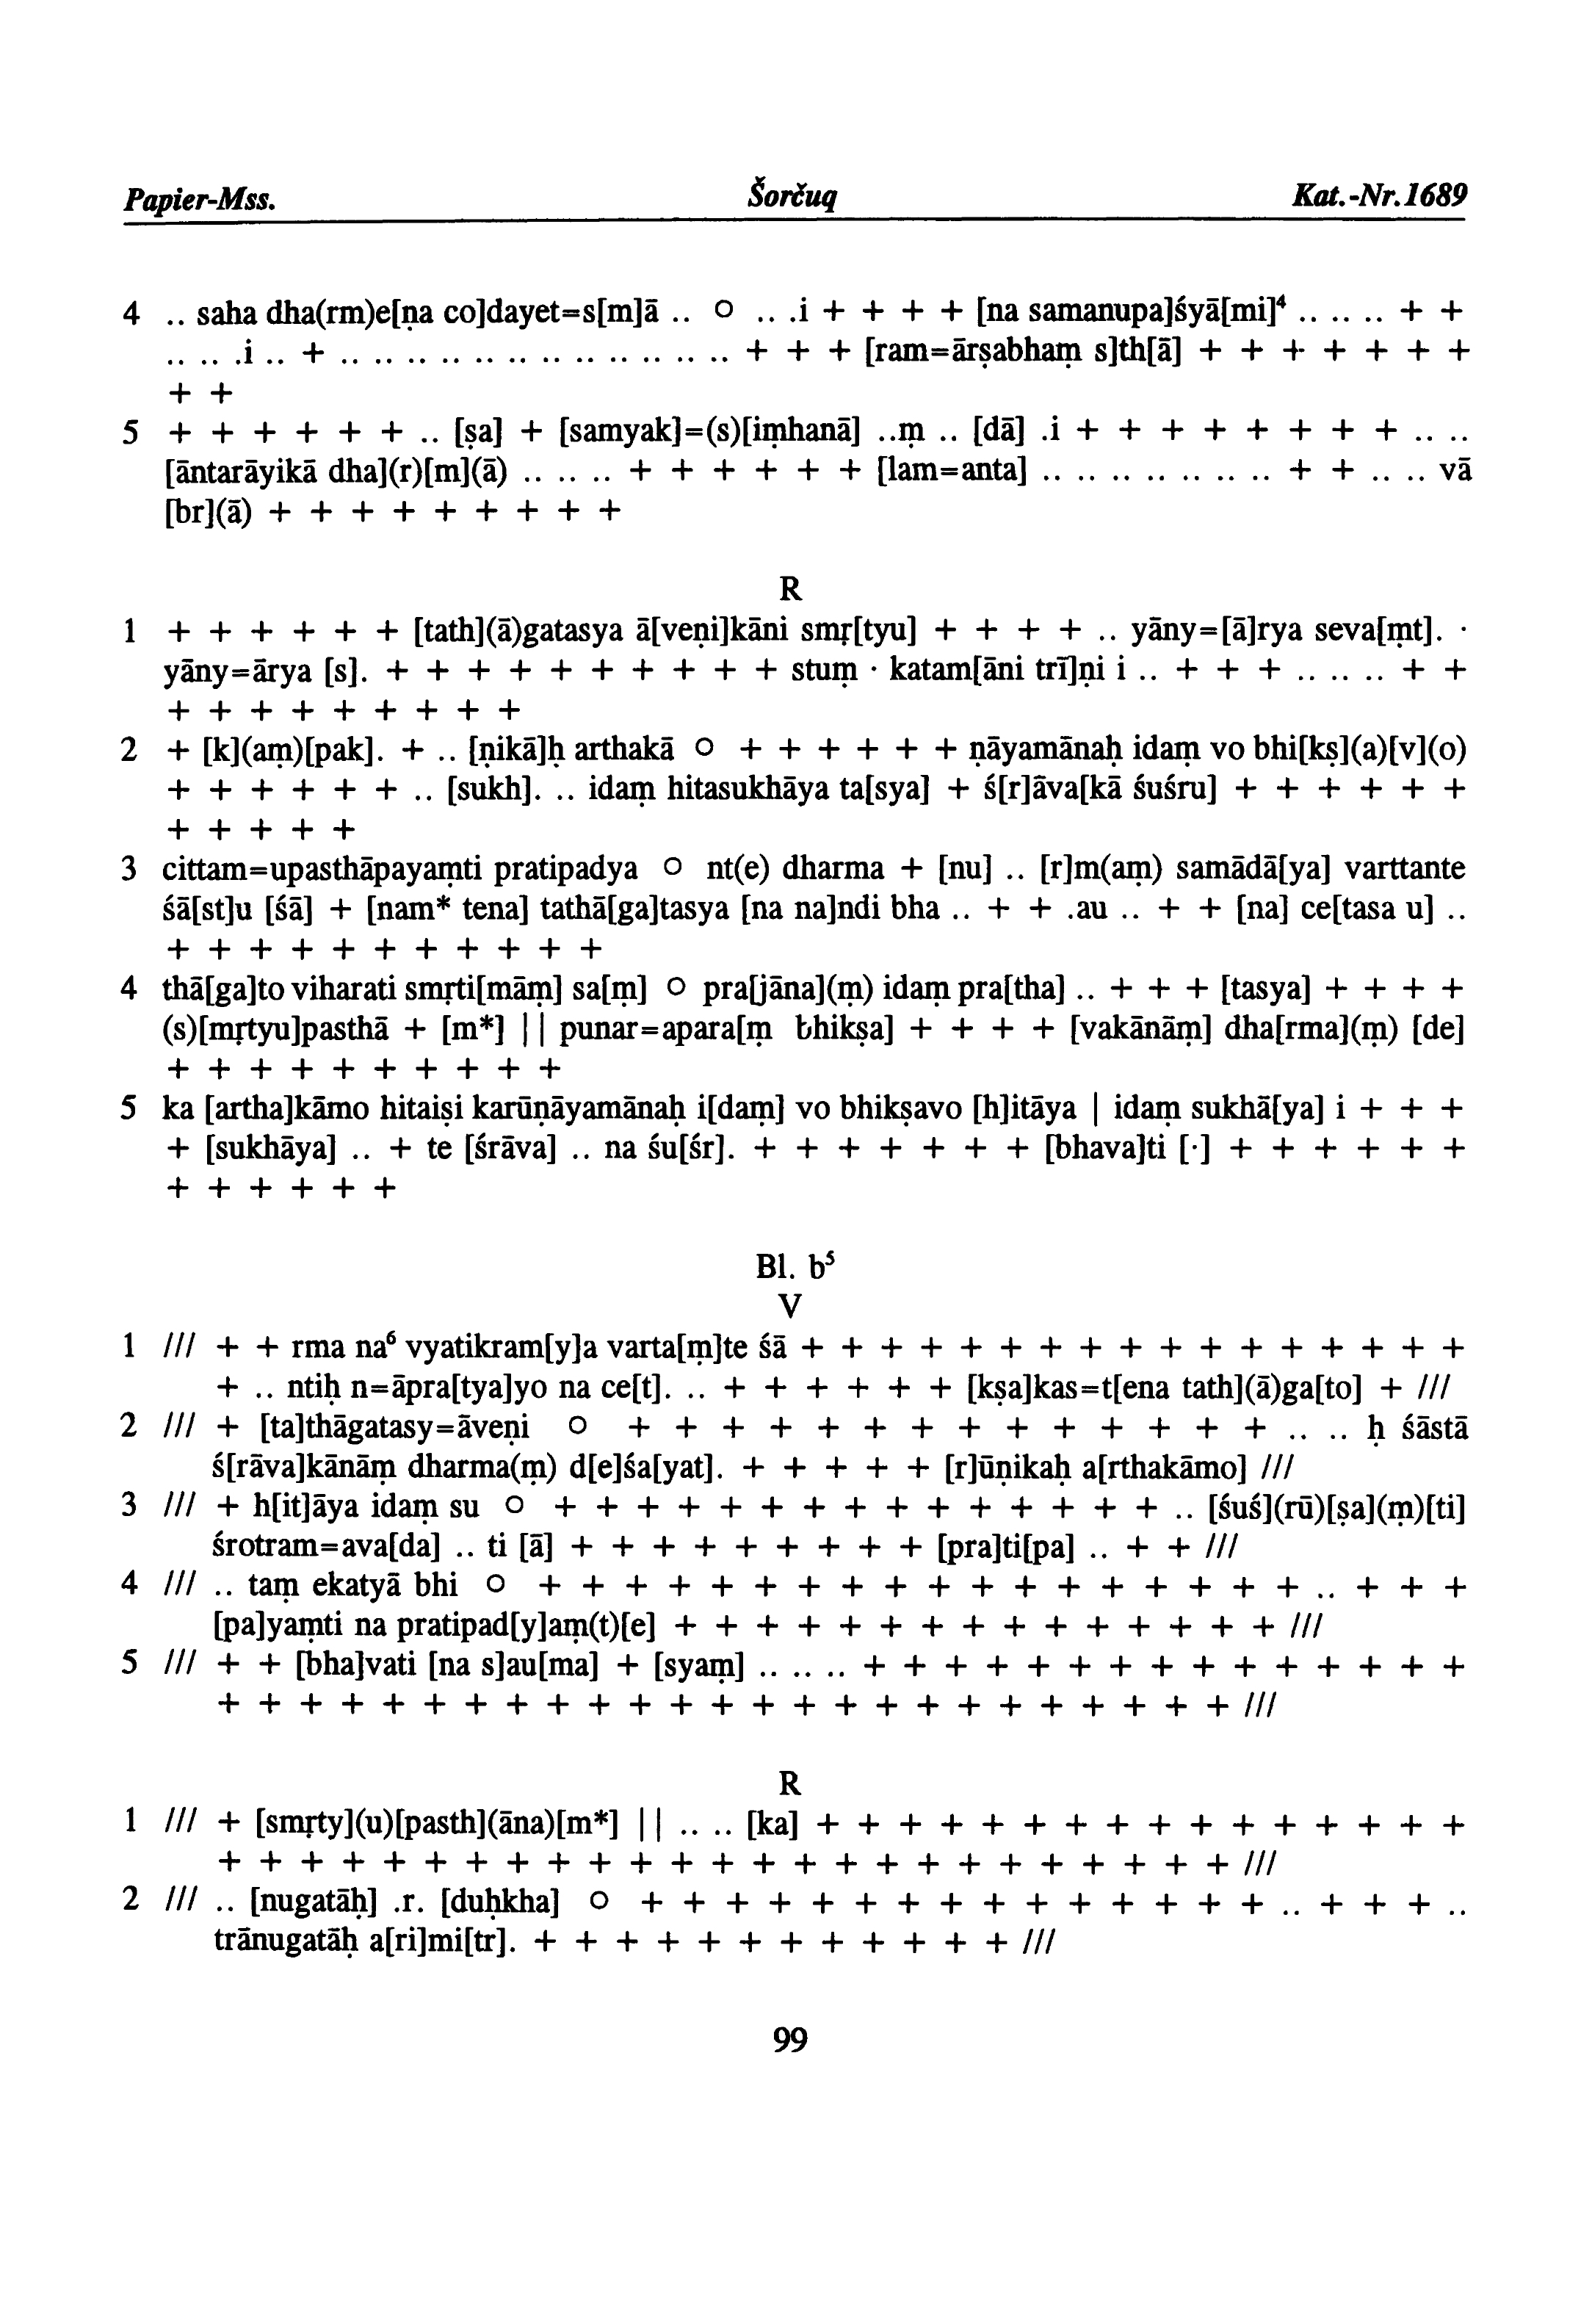 Papier-Mss. Šorčuq Kat.-Nr. 1689
4 .. saha dha(rm)e[ṇa co]dayet=s[m]ā .. ○ .. .i + + + + [na samanupa]śyā[mi]⁴ .. .. .. + +
.. .. .i .. + .. .. .. .. .. .. .. .. .. .. .. .. + + + [ram=ārṣabhaṃ s]th[ā] + + + + + + +
+ +
5 + + + + + + .. [ṣa] + [samyak]=(s)[iṃhanā] ..ṃ .. [dā] .i + + + + + + + + .. ..
[āntarāyikā dha](r)[m](ā) .. .. .. + + + + + + [lam=anta] .. .. .. .. .. .. .. + + .. .. vā
[br](ā) + + + + + + + + +
R
1 + + + + + + [tath](ā)gatasya ā[veṇi]kāni smṛ[tyu] + + + + .. yāny=[ā]rya seva[ṃt]. ·
yāny=ārya [s]. + + + + + + + + + + stuṃ · katam[āni trī]ṇi i .. + + + .. .. .. + +
+ + + + + + + + +
2 + [k](aṃ)[pak]. + .. [ṇikā]ḥ arthakā ○ + + + + + + ṇāyamānaḥ idaṃ vo bhi[kṣ](a)[v](o)
+ + + + + + .. [sukh]. .. idaṃ hitasukhāya ta[sya] + ś[r]āva[kā śuśru] + + + + + +
+ + + + +
3 cittam=upasthāpayaṃti pratipadya ○ nt(e) dharma + [nu] .. [r]m(aṃ) samādā[ya] varttante
śā[st]u [śā] + [nam* tena] tathā[ga]tasya [na na]ndi bha .. + + .au .. + + [na] ce[tasa u] ..
+ + + + + + + + + + +
4 thā[ga]to viharati smṛti[māṃ] sa[ṃ] ○ pra[jāna](ṃ) idaṃ pra[tha] .. + + + [tasya] + + + +
(s)[mṛtyu]pasthā + [m*] || punar=apara[ṃ bhikṣa] + + + + [vakānāṃ] dha[rma](ṃ) [de]
+ + + + + + + + + +
5 ka [artha]kāmo hitaiṣi karūṇāyamānaḥ i[daṃ] vo bhikṣavo [h]itāya | idaṃ sukhā[ya] i + + +
+ [sukhāya] .. + te [śrāva] .. na śu[śr]. + + + + + + + [bhava]ti [·] + + + + + +
+ + + + + +
Bl. b⁵
V
1 /// + + rma na⁶ vyatikram[y]a varta[ṃ]te śā + + + + + + + + + + + + + + + + +
+ .. ntiḥ n=āpra[tya]yo na ce[t]. .. + + + + + + [kṣa]kas=t[ena tath](ā)ga[to] + ///
2 /// + [ta]thāgatasy=āveṇi ○ + + + + + + + + + + + + + + .. .. ḥ śāstā
ś[rāva]kānāṃ dharma(ṃ) d[e]śa[yat]. + + + + + [r]ūṇikaḥ a[rthakāmo] ///
3 /// + h[it]āya idaṃ su ○ + + + + + + + + + + + + + + + .. [śuś](rū)[ṣa](ṃ)[ti]
śrotram=ava[da] .. ti [ā] + + + + + + + + + [pra]ti[pa] .. + + ///
4 /// .. taṃ ekatyā bhi ○ + + + + + + + + + + + + + + + + + + .. + + +
[pa]yaṃti na pratipad[y]aṃ(t)[e] + + + + + + + + + + + + + + + ///
5 /// + + [bha]vati [na s]au[ma] + [syaṃ] .. .. .. + + + + + + + + + + + + + + +
+ + + + + + + + + + + + + + + + + + + + + + + + + ///
R
1 /// + [smṛty](u)[pasth](āna)[m*] || .. .. [ka] + + + + + + + + + + + + + + + +
+ + + + + + + + + + + + + + + + + + + + + + + + + ///
2 /// .. [nugatāḥ] .r. [duḥkha] ○ + + + + + + + + + + + + + + + .. + + + ..
trānugatāḥ a[ri]mi[tr]. + + + + + + + + + + + + ///
99